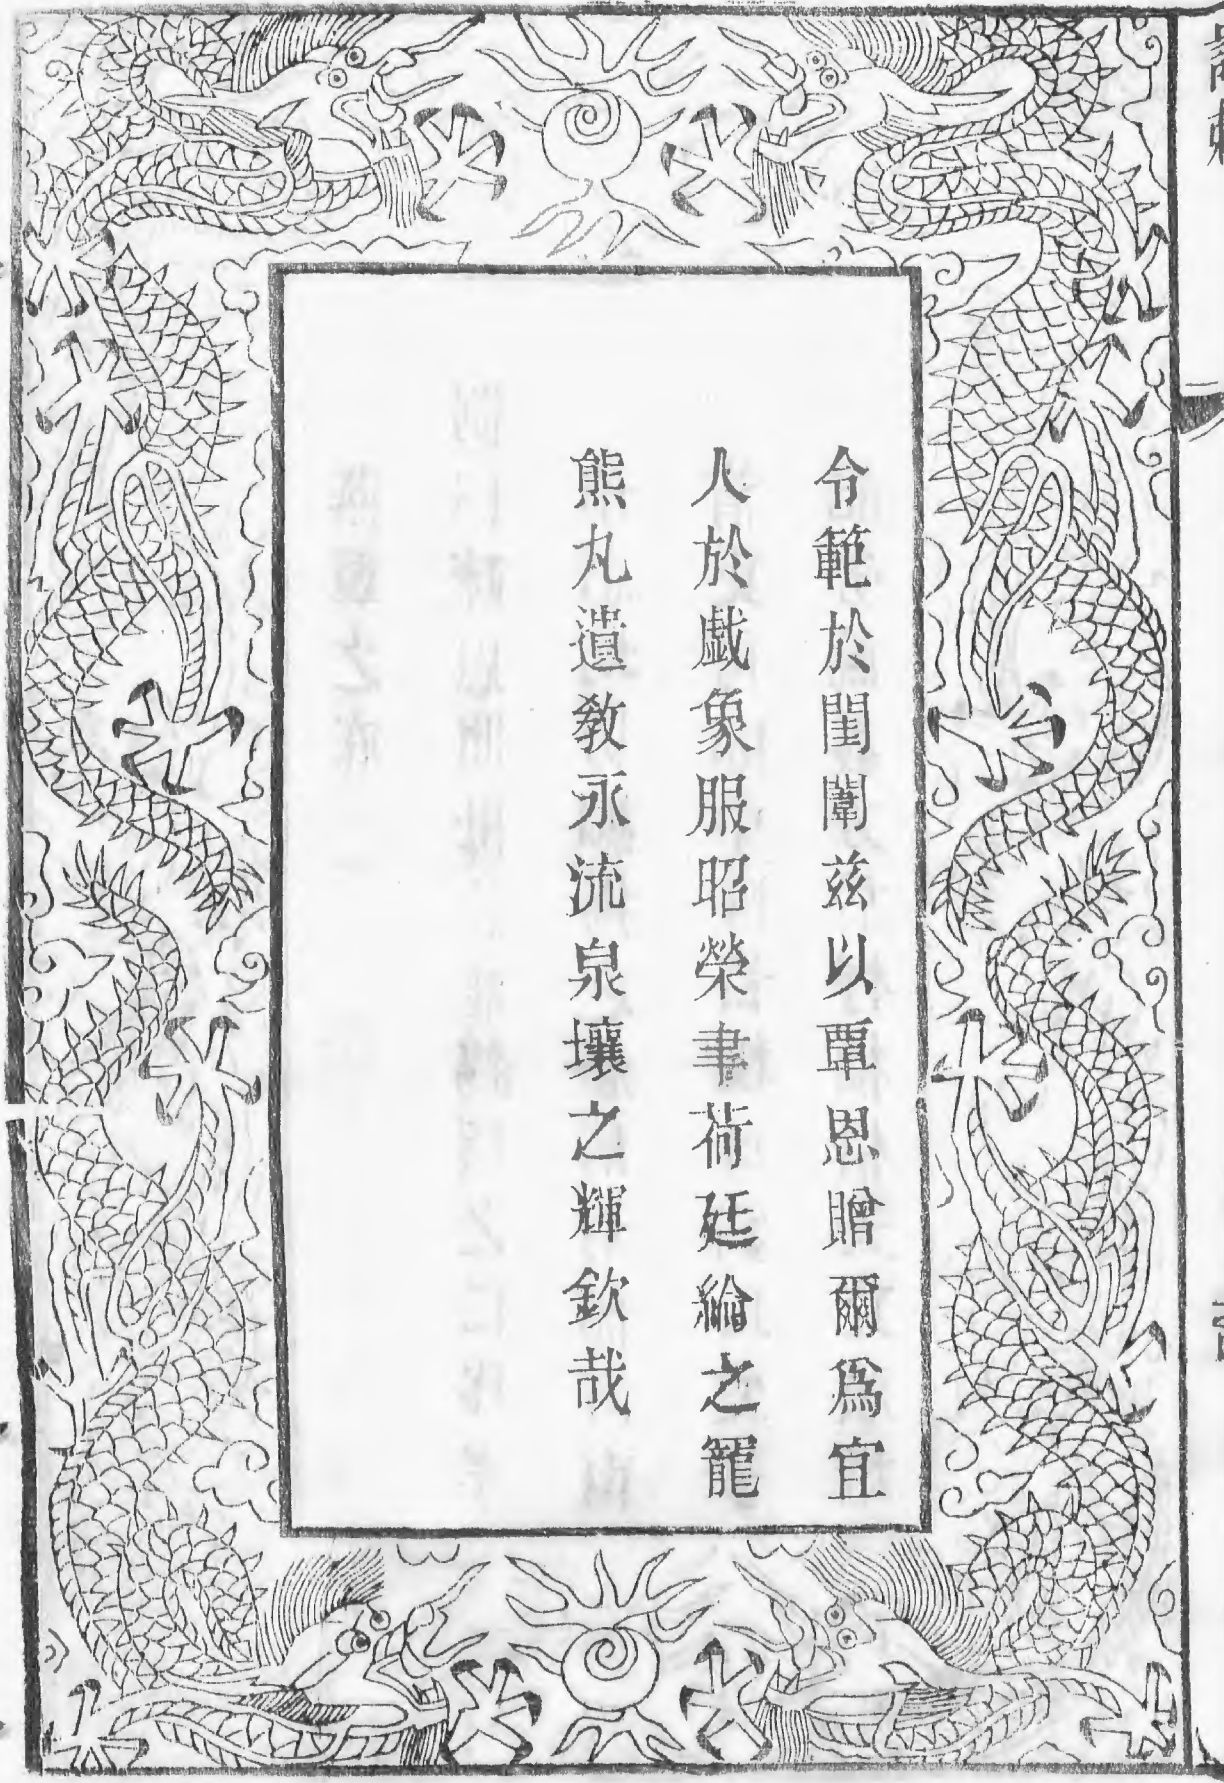 令範於閨闈兹以覃恩贈爾爲宜
人於戯象服昭榮聿荷廷綸之寵
熊丸遺教永流泉壤之輝欽哉